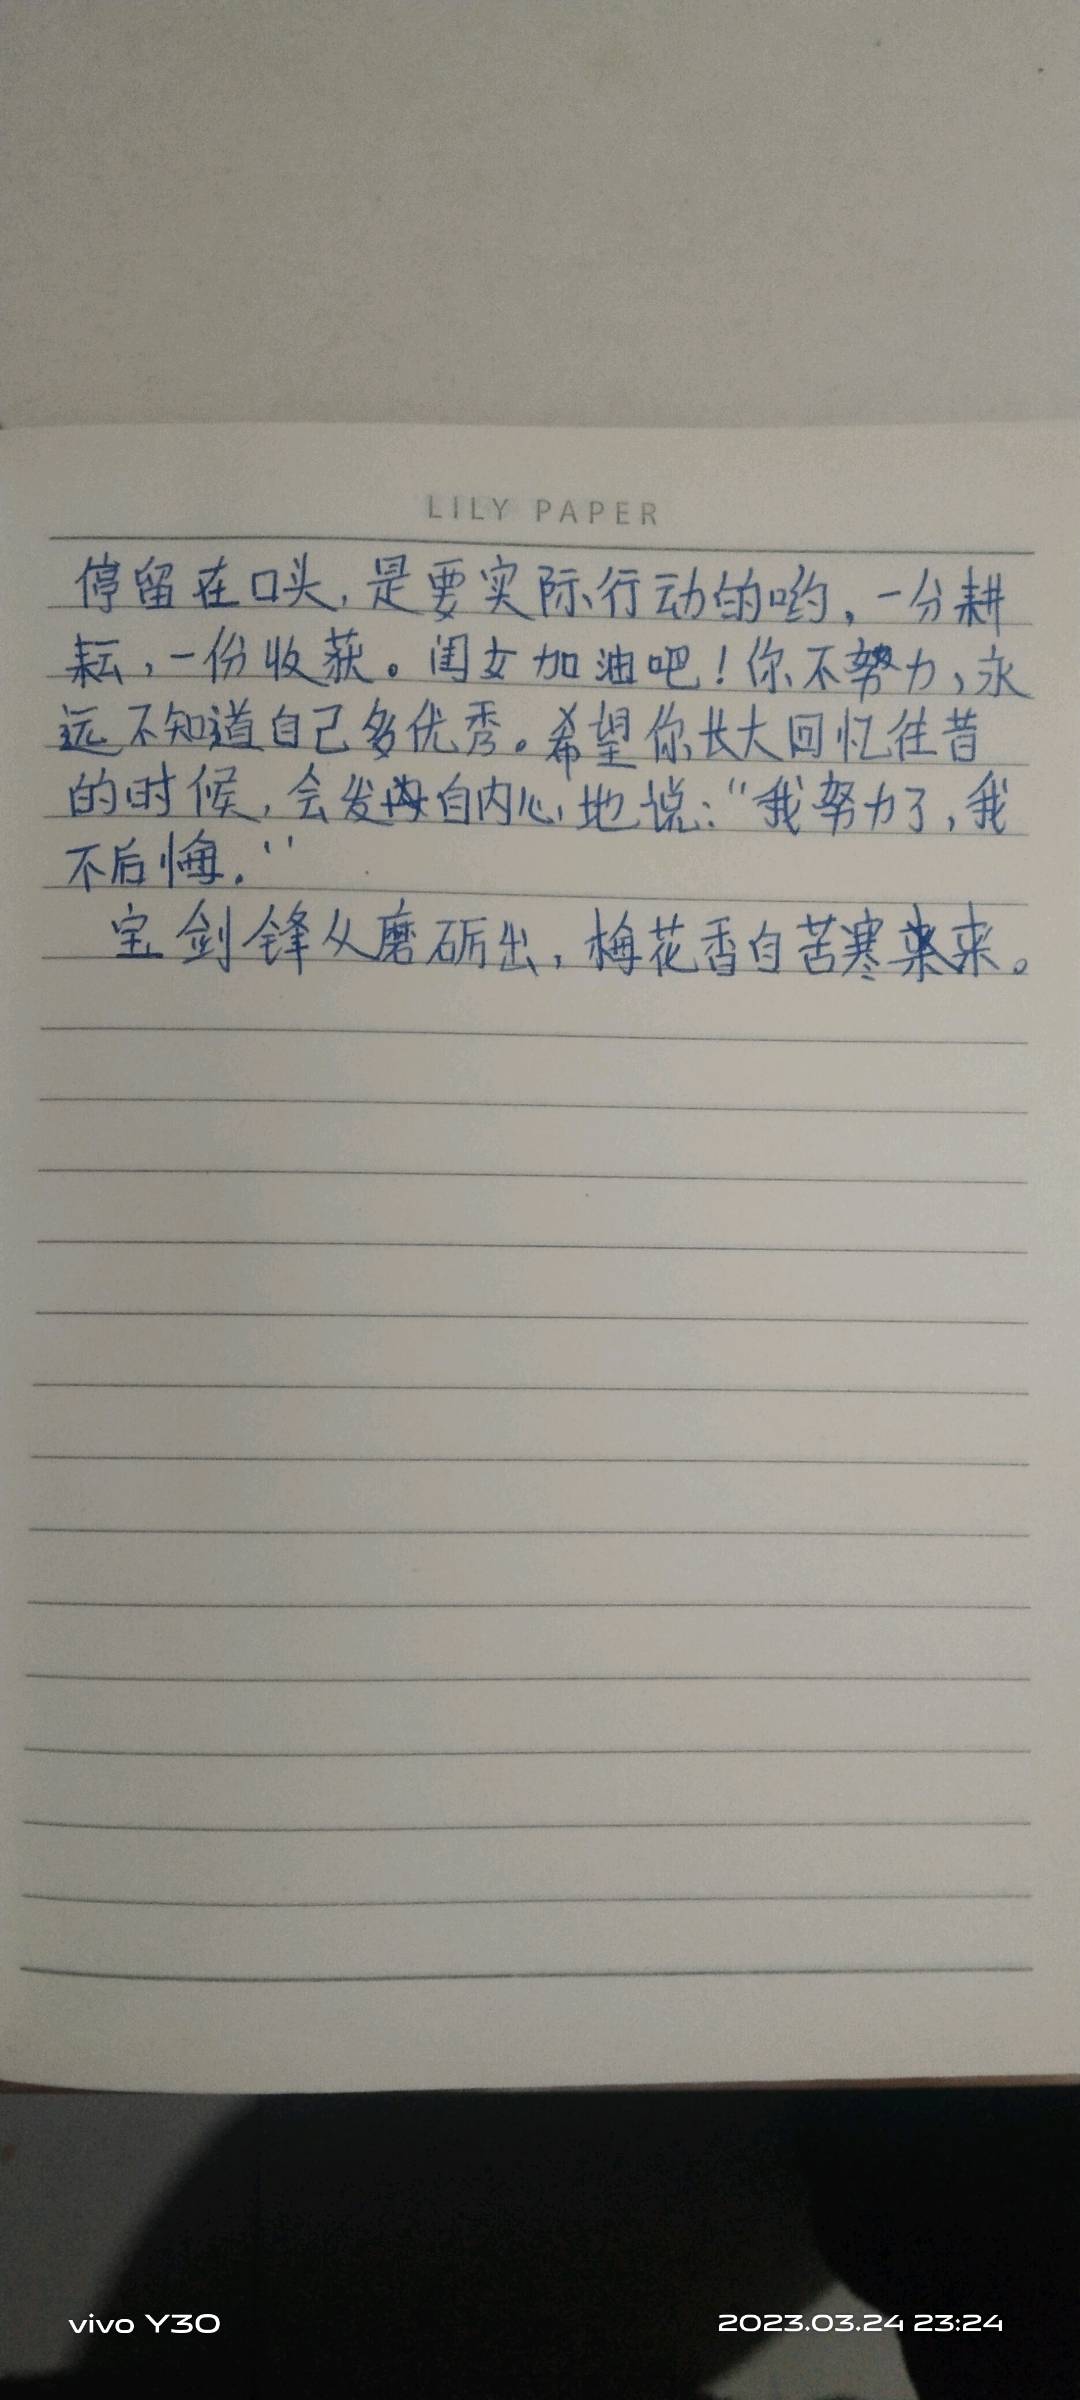 LILY PAPER
停留在口头,是要实际行动的哟,一分耕
耘,一份收获。闺女加油吧!你不努力,永
远不知道自己多优秀。希望你长大回忆往昔
的时候,会发自内心地说:“我努力了,我
不后悔.”
宝剑锋从磨砺出,梅花香自苦寒来。
vivo Y30
2023.03.24 23:24